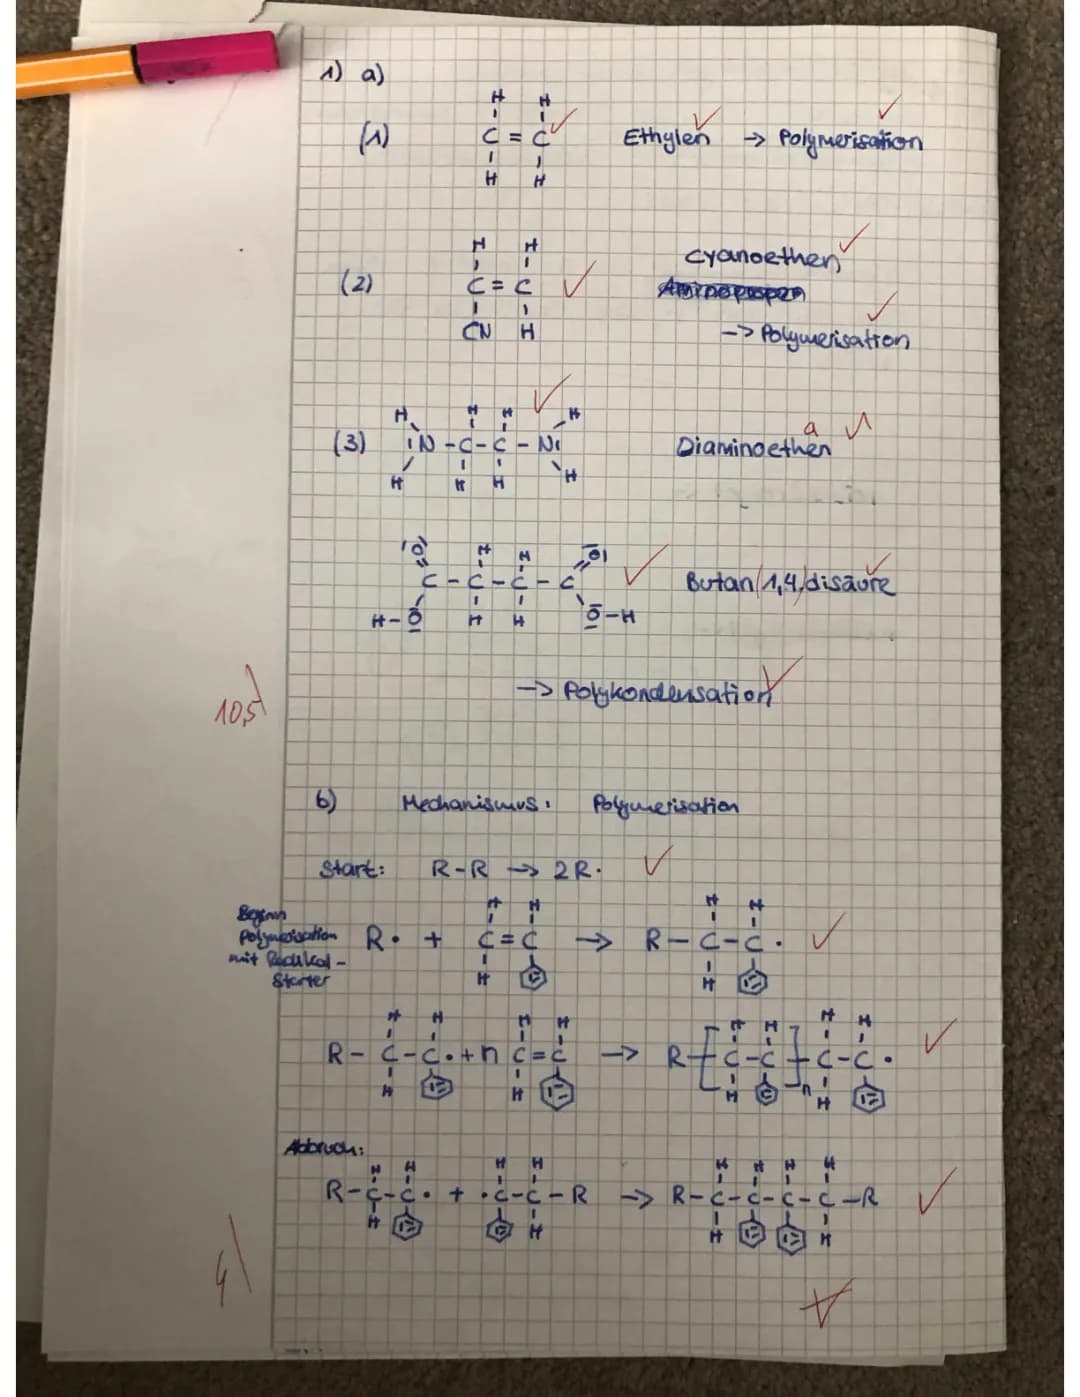 1) a)
H H
(1) C = C Ethylen → Polymerisation
H H
H H
Cyanoethen
(2) C = C Aminopropen
CN H → Polymerisation
H H H H
(3) N - C - C - N Diaminoethen a
H H H H
O H H O
C - C - C - C Butan(1,4)disäure
H - O H H O - H
→ Polykondensation
10,5
b) Mechanismus: Polymerisation
Start: R - R → 2 R·
Beginn
Polymerisation
mit Radikal-
Starter
H H H H
R· + C = C → R - C - C ·
H H
H H H H H H H H
R - C - C · + n C = C → R [ C - C ]n C - C ·
H H H H
Abbruch:
H H H H H H H H
R - C - C · + · C - C - R → R - C - C - C - C - R
H H H H
4